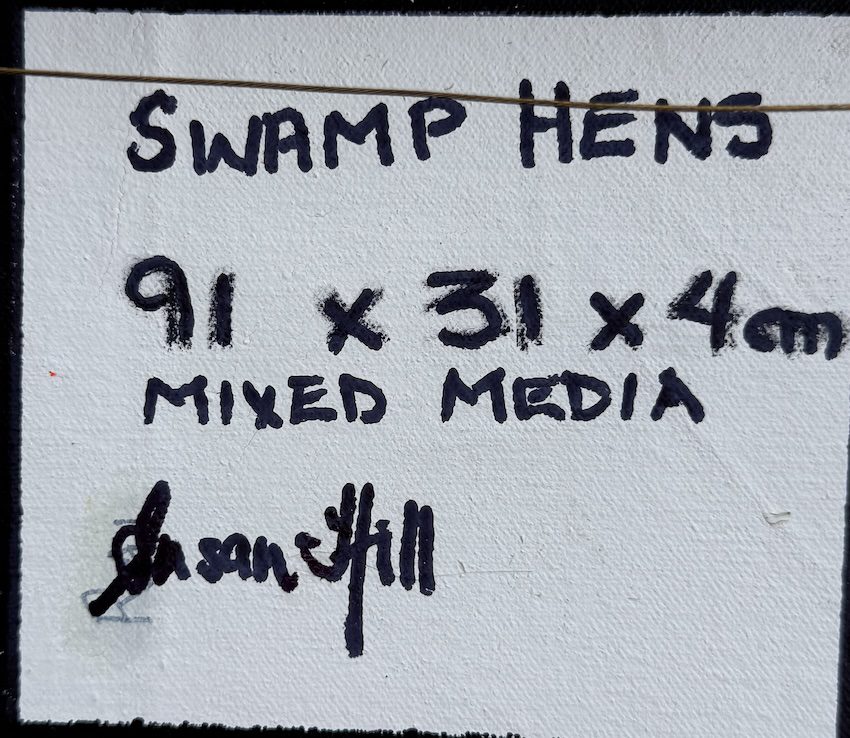 SWAMP HENS
91 x 31 x 4cm
MIXED MEDIA
Susan Hill